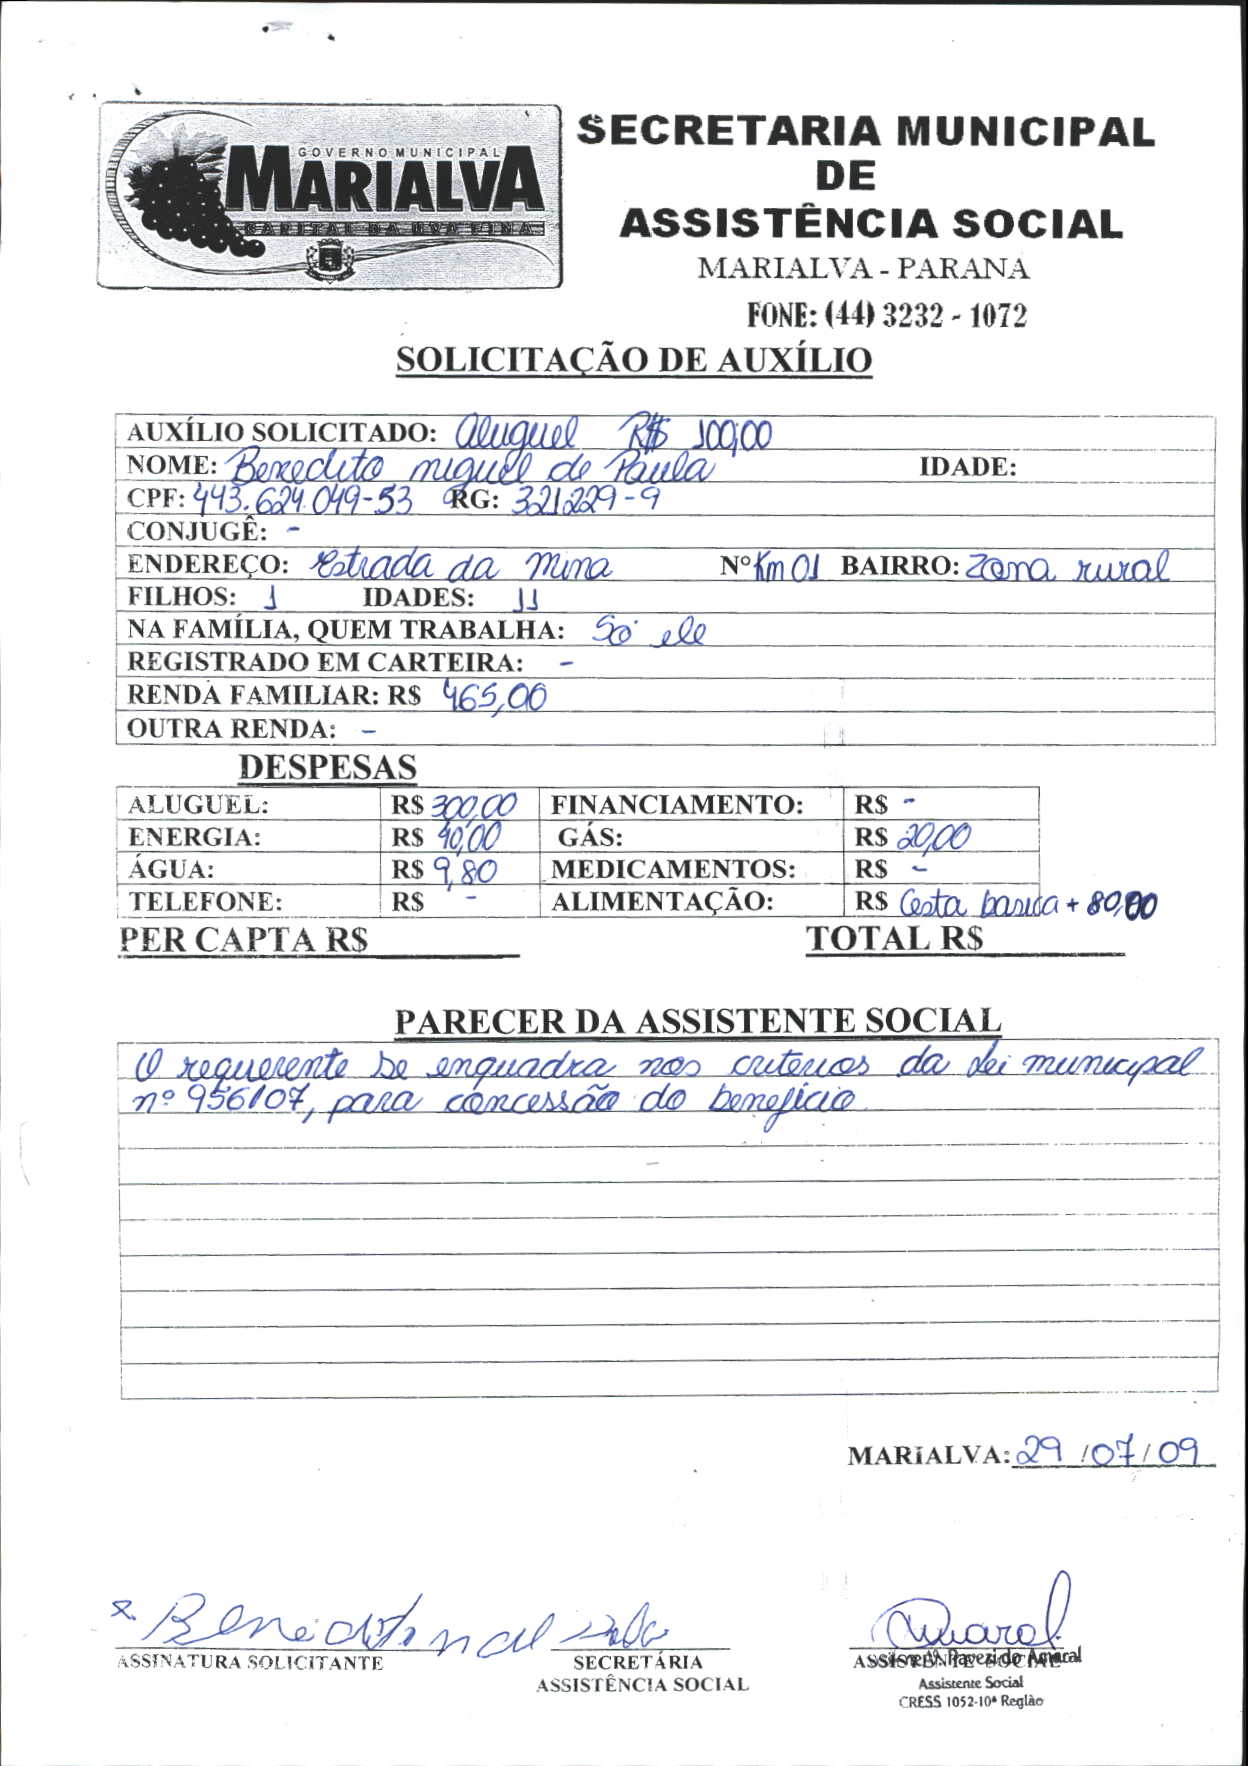 GOVERNO MUNICIPAL
MARIALVA
CAPITAL DA UVA FINA
SECRETARIA MUNICIPAL
DE
ASSISTÊNCIA SOCIAL
MARIALVA - PARANA
FONE: (44) 3232 - 1072
SOLICITAÇÃO DE AUXÍLIO
AUXÍLIO SOLICITADO: Aluguel R$ 100,00
NOME: Benedito Miguel de Paula IDADE:
CPF: 443.624.049-53 RG: 321229-9
CONJUGÊ: -
ENDEREÇO: Estrada da Mina Nº Km 01 BAIRRO: Zona rural
FILHOS: 1 IDADES: 11
NA FAMÍLIA, QUEM TRABALHA: Só ele
REGISTRADO EM CARTEIRA: -
RENDA FAMILIAR: R$ 465,00
OUTRA RENDA: -
DESPESAS
ALUGUEL: R$ 300,00 FINANCIAMENTO: R$ -
ENERGIA: R$ 40,00 GÁS: R$ 20,00
ÁGUA: R$ 9,80 MEDICAMENTOS: R$ -
TELEFONE: R$ - ALIMENTAÇÃO: R$ Cesta basica + 80,00
PER CAPTA R$ TOTAL R$
PARECER DA ASSISTENTE SOCIAL
O requerente se enquadra nos criterios da Lei municipal
nº 956/07, para concessão do beneficio
MARIALVA: 29 / 07 / 09
x. Benedito Amaral
ASSINATURA SOLICITANTE SECRETÁRIA ASSISTENTE SOCIAL
ASSISTÊNCIA SOCIAL Pavezi do Amaral
Assistente Social
CRESS 1052-10ª Região